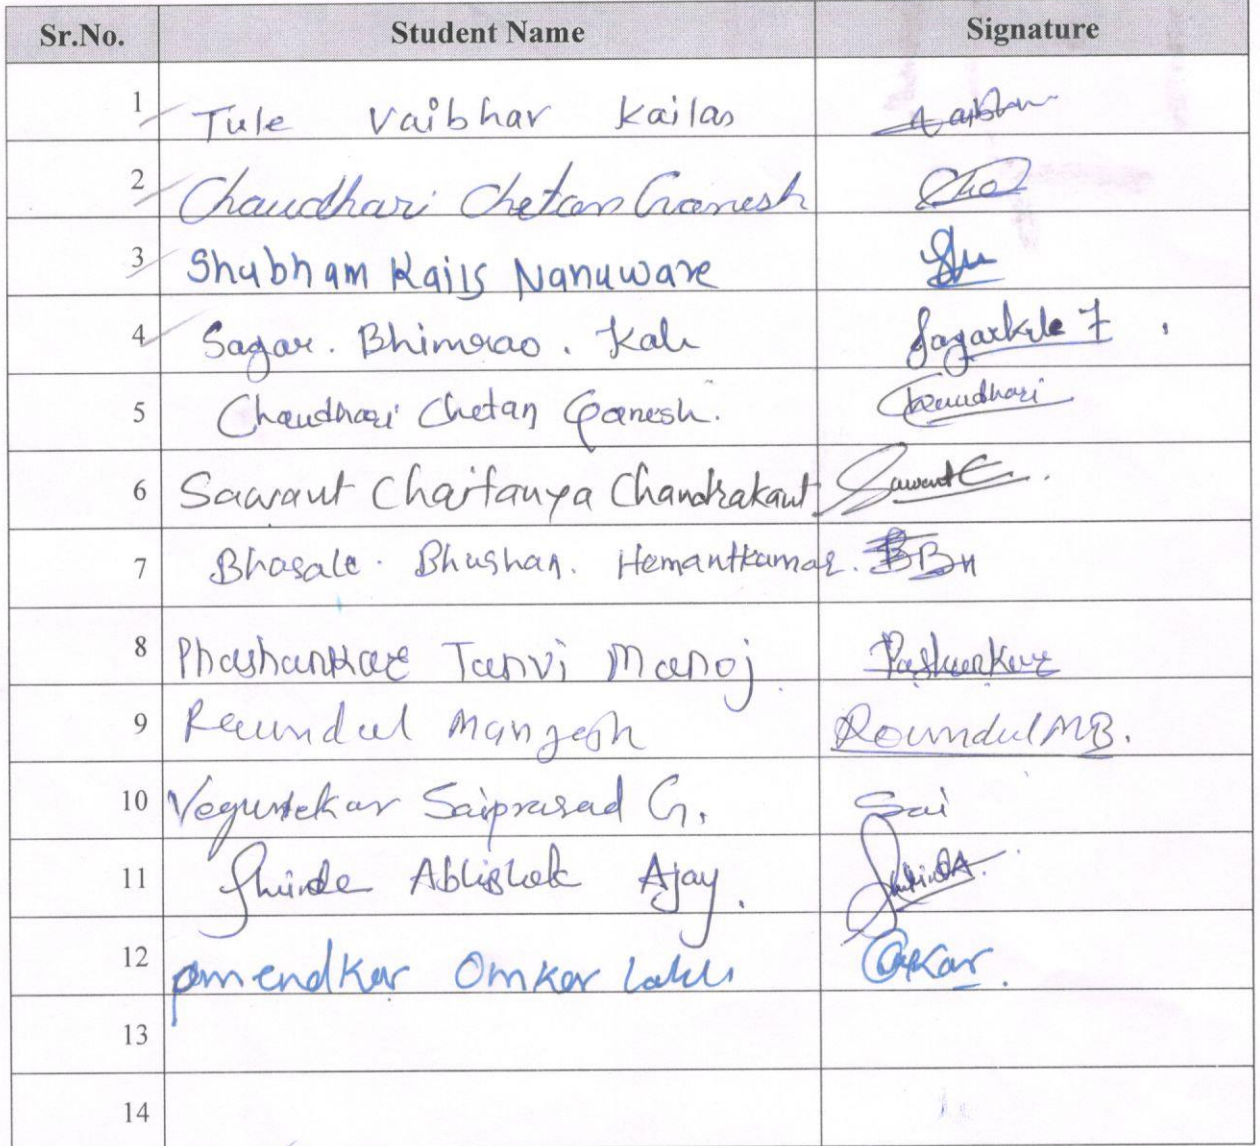 Sr.No. Student Name Signature
1 Tule Vaibhav Kailas
2 Chaudhari Chetan Ganesh
3 Shubham Kails Nanuware
4 Sagar. Bhimrao. Kale Sagarkale
5 Chaudhari Chetan Ganesh. Chaudhari
6 Sawant Chaitanya Chandrakant Sawant C.
7 Bhasale. Bhushan. Hemantkumar.
8 Phashankar Tanvi Manoj Pashankar
9 Raundal Mangesh Roundul M.B.
10 Saiprasad G. Sai
11 Shinde Abhishek Ajay.
12 Omkar
13
14